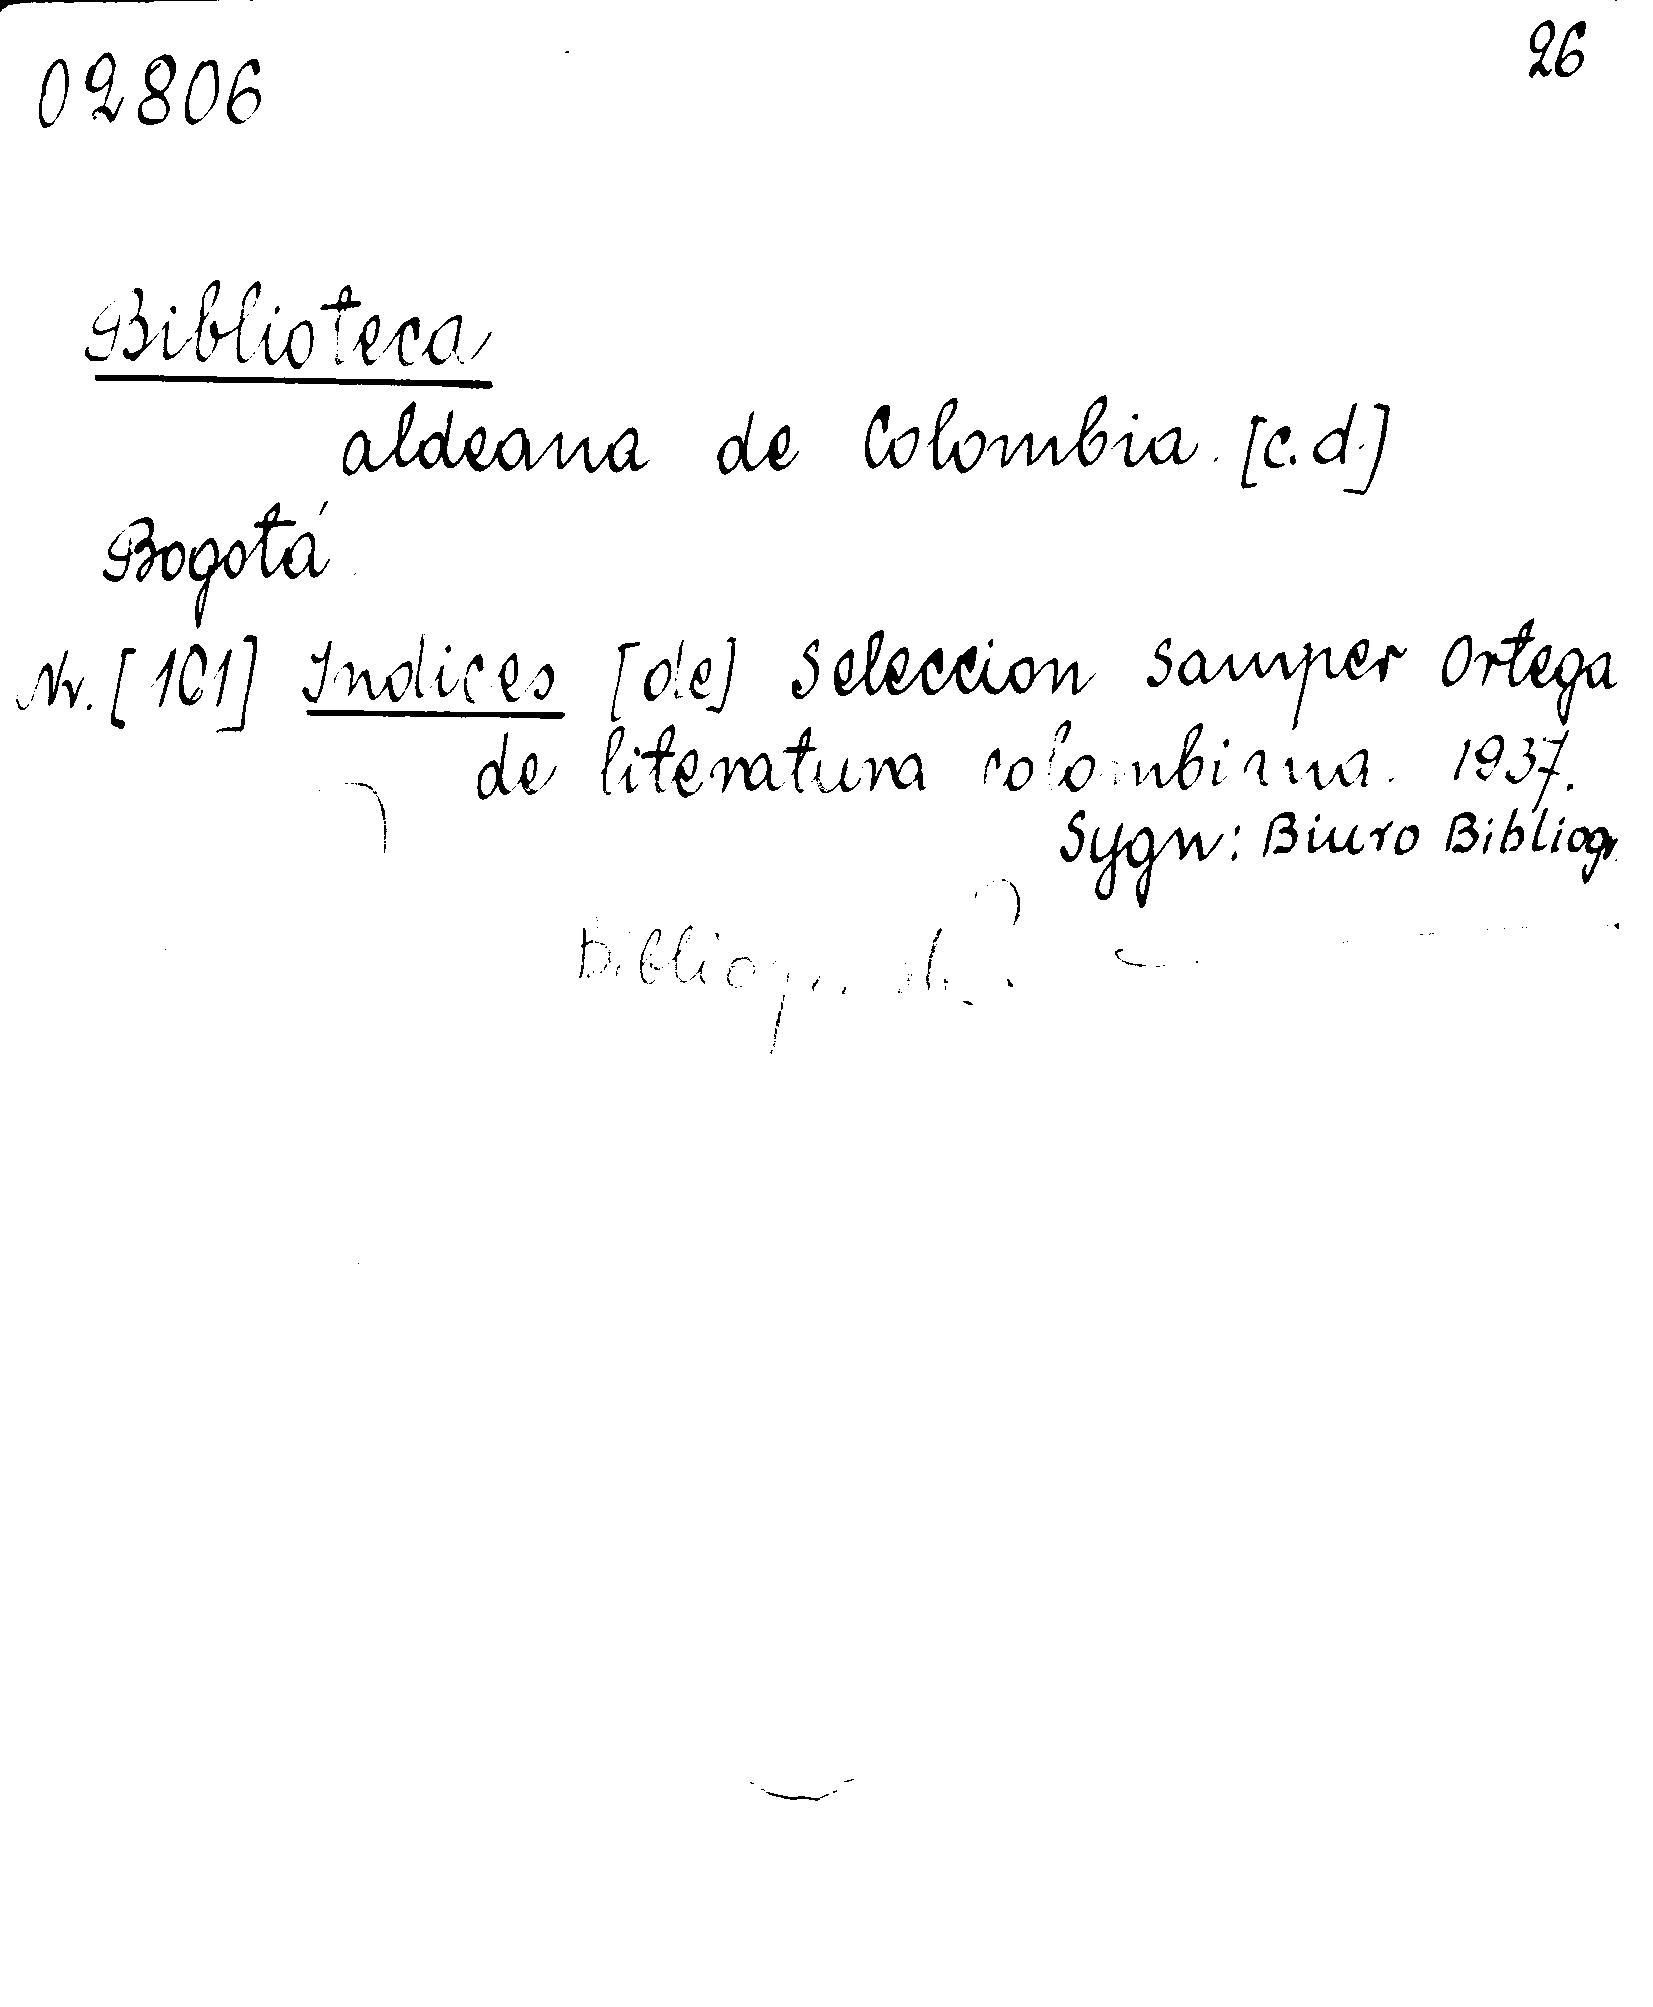 02806
26
Biblioteca
aldeana de Colombia. [c.d.]
Bogotá
Nr. [101] Indices [de] Seleccion Samper Ortega
de literatura colombiana. 1937.
Sygn: Biuro Bibliogr.
Bibliogr.